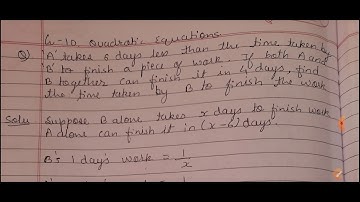 G-10 Quadratic Equations
Q) A takes 6 days less than the time taken by
B to finish a piece of work. If both A and
B together can finish it in 4 days, find
the time taken by B to finish the work
Solu Suppose B alone takes x days to finish work
A alone can finish it in (x-6) days.
B's 1 day's work = 1/x